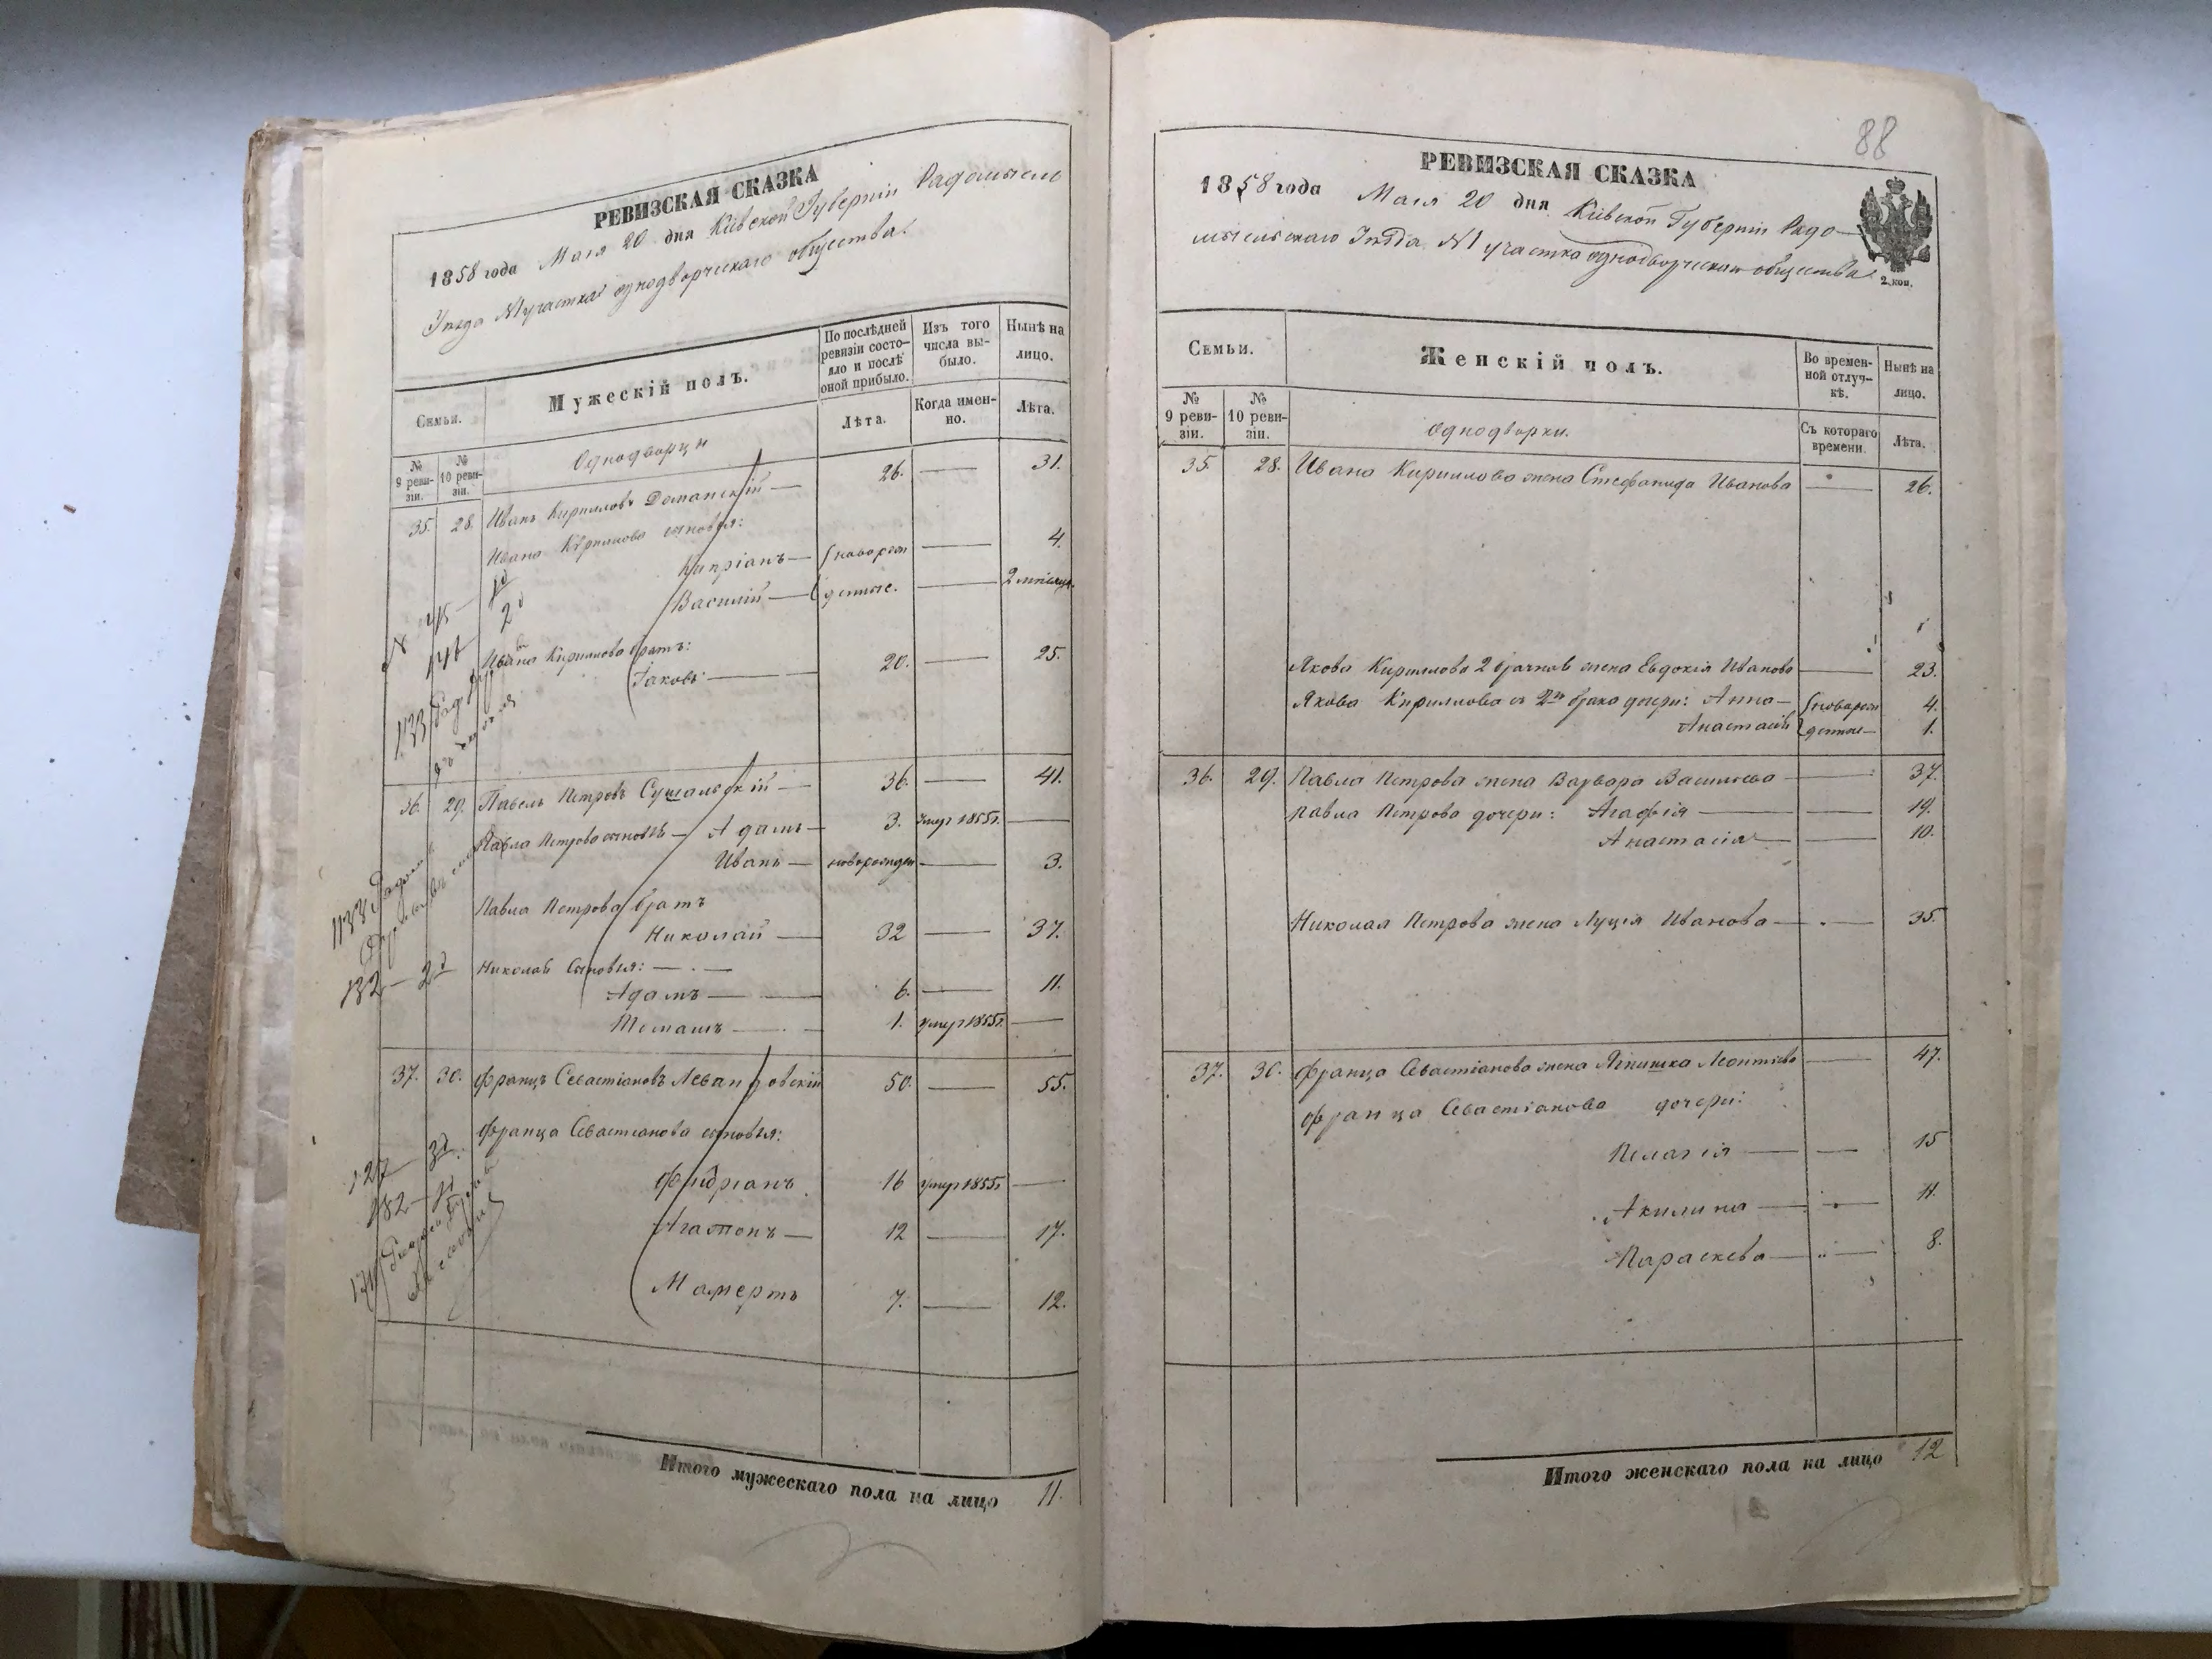 РЕВИЗСКАЯ СКАЗКА
1858 года Мая 20 дня Кіевской Губерніи Радомысль
Уѣзда №1 участка однодворческаго общества.
Семьи.
Мужескій полъ.
По послѣдней ревизіи состояло и послѣ оной прибыло.
Изъ того числа выбыло.
Нынѣ на лицо.
№ 9 ревизіи.
№ 10 ревизіи.
Однодворцы
Лѣта.
Когда именно.
Лѣта.
35. 28. Иванъ Кирилловъ Доманскій — 26. — 31.
Ивана Кирилова сыновья:
Кипріанъ — новорож — 4.
Василій — денные. — 2 мѣсяца
Ивана Кирилова братъ:
Іаковъ — 20. — 25.
36. 29. Павелъ Петровъ Сушальскій — 36. — 41.
Павла Петрова сыновья — Адамъ — 3. умеръ 1855г. —
Иванъ — новорожден — 3.
Павла Петрова братъ
Николай — 32 — 37.
Николая Сыновья: — . —
Адамъ — 6. — 11.
Томашъ — 1. умер 1855г. —
132 — 2й
37. 30. Францъ Севастіановъ Левандовскій 50. — 55.
Франца Севастіанова сыновья:
127 — 3й
Фидріанъ 16 умер 1855г —
182 —
Агатонъ — 12 — 17.
Мамертъ 7. — 12.
Итого мужескаго пола на лицо 11.
88
РЕВИЗСКАЯ СКАЗКА
1858 года Мая 20 дня Кіевской Губерніи Радо—
мысльскаго Уѣзда №1 участка однодворческаго общества.
2 коп.
Семьи.
Женскій полъ.
Во временной отлучкѣ.
Нынѣ на лицо.
№ 9 ревизіи.
№ 10 ревизіи.
Однодворки.
Съ котораго времени.
Лѣта.
35. 28. Ивана Кириллова жена Стефанида Иванова — 26.
Якова Кириллова 2 брачная жена Евдокія Иванова — 23.
Якова Кириллова съ 2го брака дочери: Анна — новорож 4.
Анастасія денные — 1.
36. 29. Павла Петрова жена Варвара Васильева — 37.
Павла Петрова дочери: Агафія — 14.
Анастасія — 10.
Николая Петрова жена Луція Иванова — 35.
37. 30. Франца Севастіанова жена Ягнишка Леонтіева — 47.
Франца Севастіанова дочери:
Пелагія — 15
Акилина — 11.
Параскева — 8.
Итого женскаго пола на лицо 12